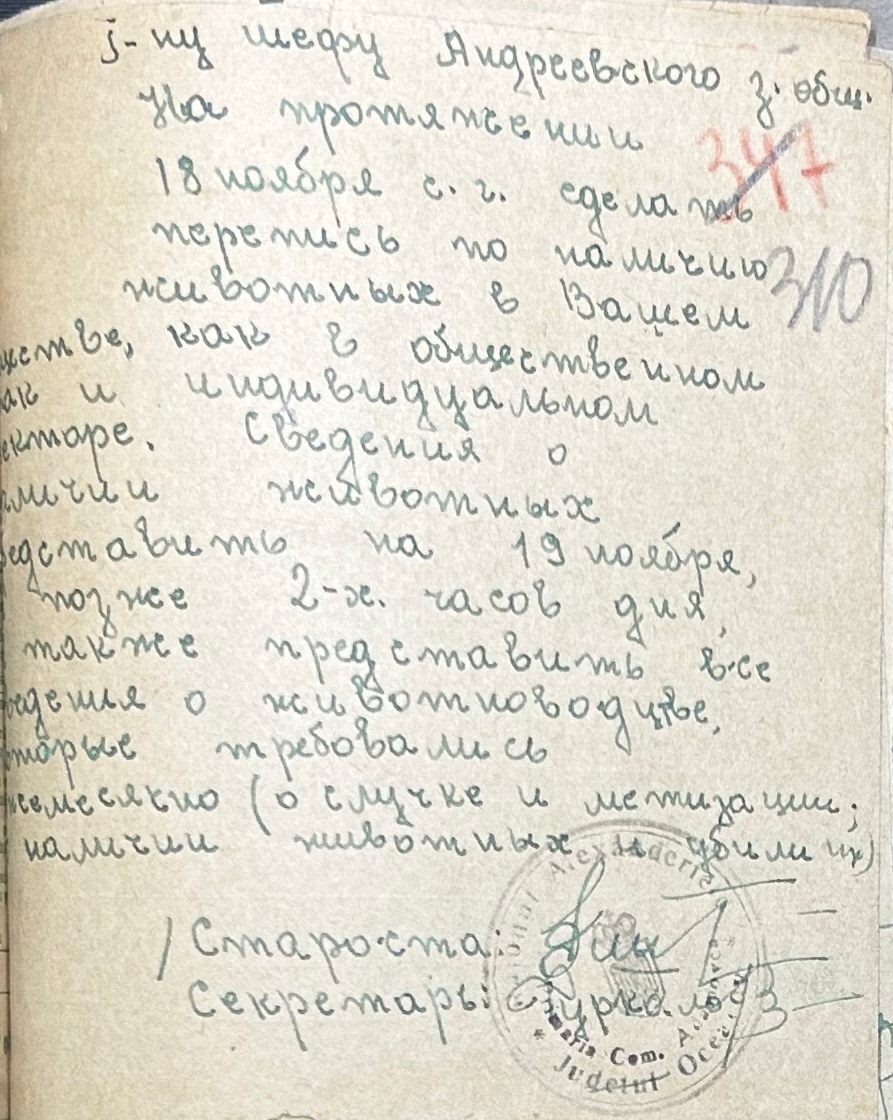 г-ну шефу Андреевского з. общ.
На протяжении
347
18 ноября с. г. сделать
перепись по наличию
310
животных в Вашем
ществе, как в общественном
ак и индивидуальном
екторе. Сведения о
аличии животных
едставить на 19 ноября,
позже 2-х. часов дня,
также представить все
ведения о животноводстве,
оторые требовались
жемесячно (о случке и метизации;
наличии животных и убыли их)
/ Староста:
Секретарь:
Primaria Com.
Judetul